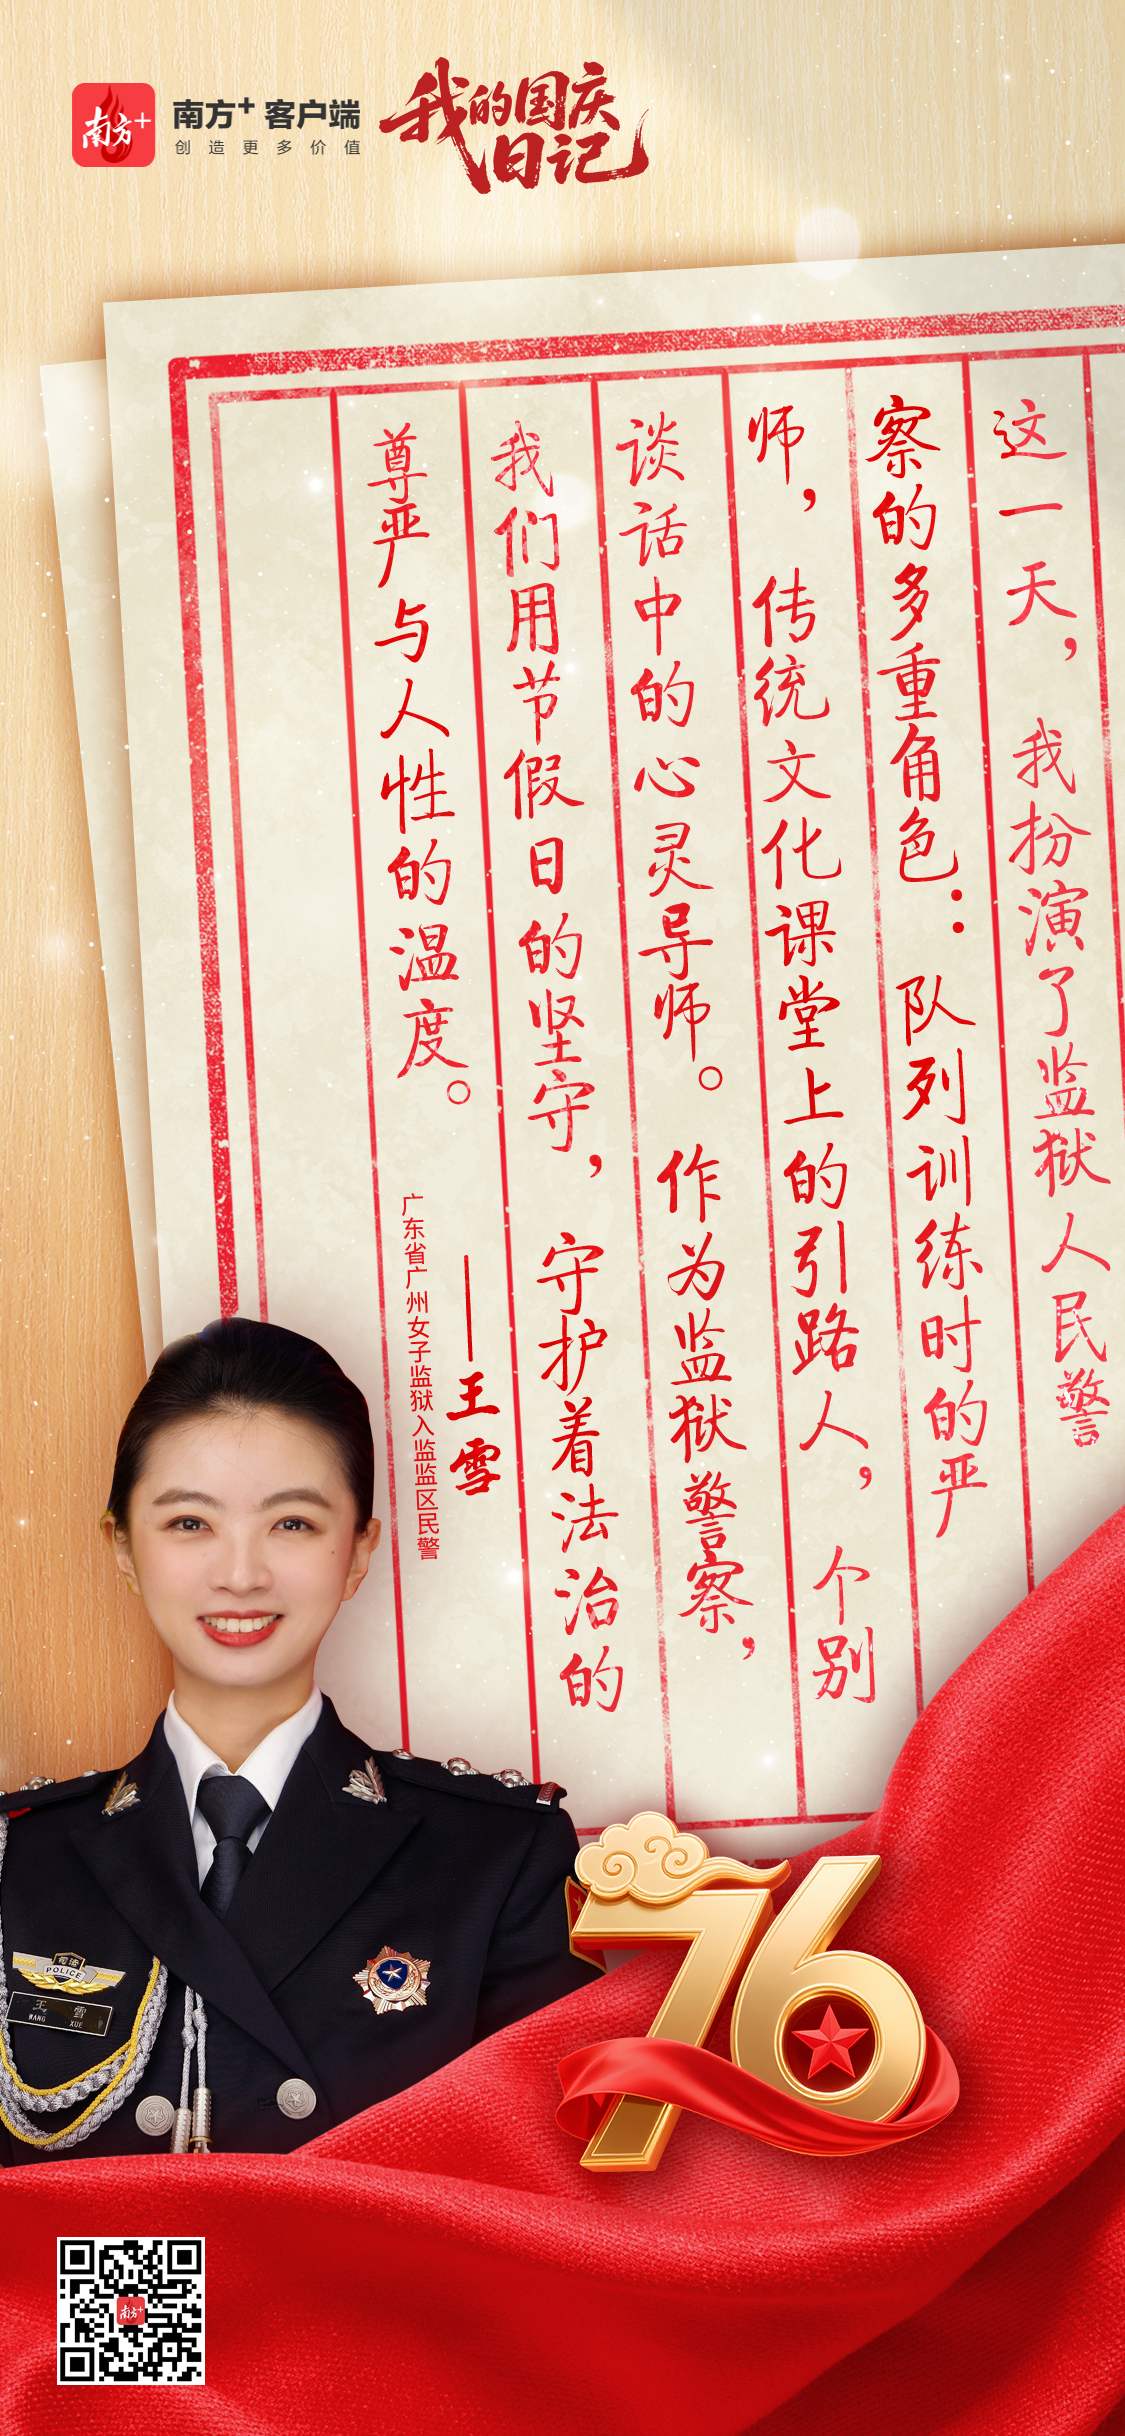 南方+
南方+ 客户端
创造更多价值
我的国庆
日记
这一天，我扮演了监狱人民警
察的多重角色：队列训练时的严
师，传统文化课堂上的引路人，个别
谈话中的心灵导师。作为监狱警察，
我们用节假日的坚守，守护着法治的
尊严与人性的温度。
——王雪
广东省广州女子监狱入监监区民警
司法
POLICE
王 雪
WANG XUE
76
南方+